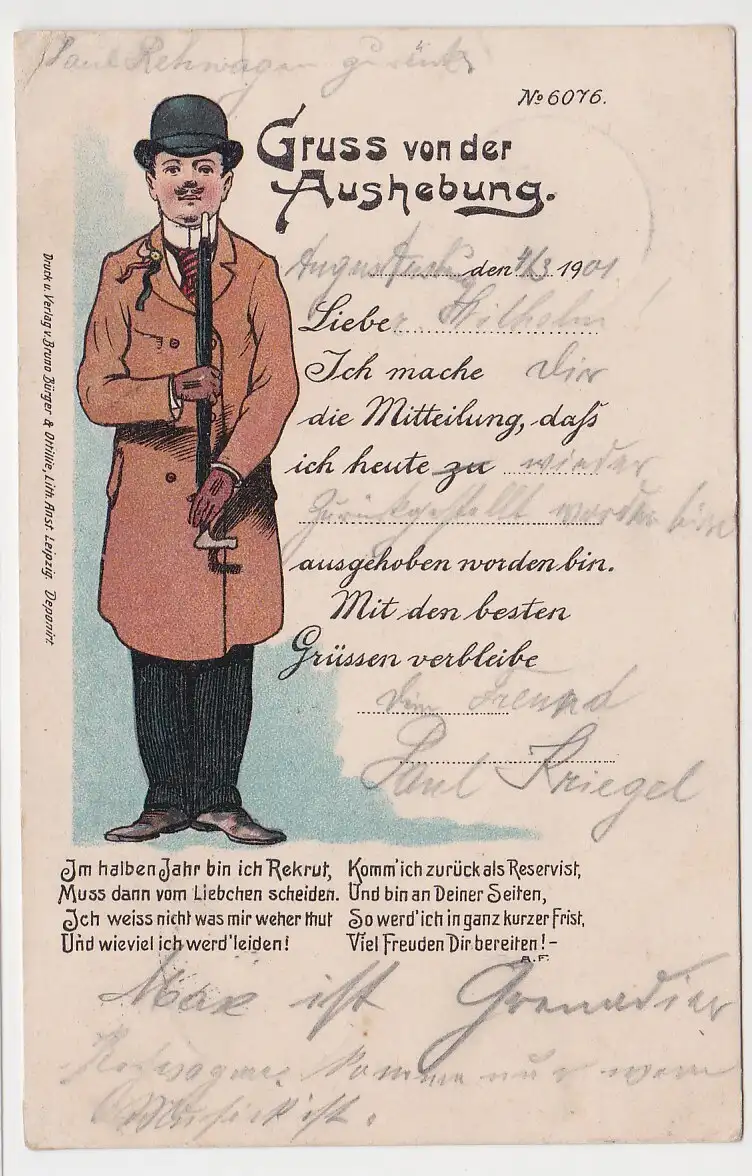 Paul Rehwagen zurück
No 6076.
Gruss von der
Aushebung.
den 4/3 1901
Lieber Wilhelm!
Ich mache Dir
die Mitteilung, daß
ich heute zu wieder
Zurückgestellt worden bin
ausgehoben worden bin.
Mit den besten
Grüssen verbleibe
Dein Freund
Paul Kriegel
Im halben Jahr bin ich Rekrut,
Muss dann vom Liebchen scheiden.
Ich weiss nicht was mir weher thut
Und wieviel ich werd' leiden!
Komm' ich zurück als Reservist,
Und bin an Deiner Seiten,
So werd' ich in ganz kurzer Frist,
Viel Freuden Dir bereiten! –
A.F.
Max ist Grenadier
komme nur wenn
Musick ist.
Druck u. Verlag v. Bruno Bürger & Ottillie, Lith. Anst. Leipzig. Deponirt